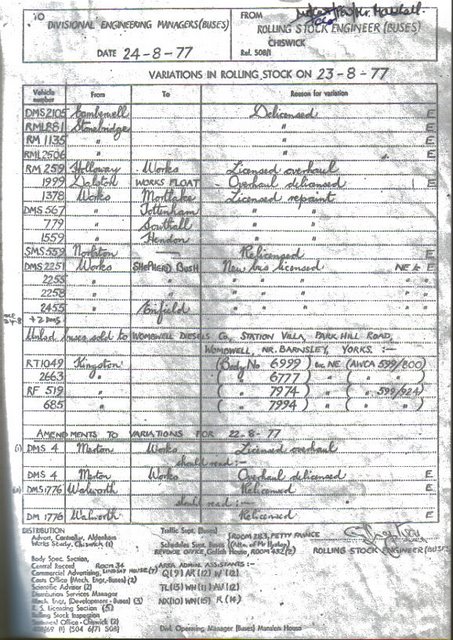 TO DIVISIONAL ENGINEERING MANAGERS (BUSES)
DATE 24-8-77
FROM
ROLLING STOCK ENGINEER (BUSES)
CHISWICK
Ref. 508/1
VARIATIONS IN ROLLING STOCK ON 23-8-77
Vehicle number From To Reason for variation
DMS 2105 Camberwell Delicensed E
RML 881 Stonebridge " E
RM 1135 " " E
RML 2506 " " E
RM 259 Holloway Works Licensed overhaul
1999 Dalston WORKS FLOAT Overhaul delicensed 1 E
1378 Works Mortlake Licensed repaint
DMS 567 " Tottenham " "
779 " Southall " "
1559 " Hendon " "
SMS 559 Norbiton Relicensed E
DMS 2251 Works SHEPHERD'S BUSH New bus licensed NE to E
2255 " " " " " " " "
2258 " " " " " " " "
2455 " Enfield " " " " "
+ 2 DMS
24-8
buses sold to WOMBWELL DIESELS Co., STATION VILLA, PARK HILL ROAD,
WOMBWELL, NR. BARNSLEY, YORKS. :—
RT 1049 Kingston (Body No 6999) ex NE (AWCA 599/800)
2663 " ( " 6777) " ( " " )
RF 519 " ( " 7974) " ( " 599/924)
685 " ( " 7994) " ( " " )
AMENDMENTS TO VARIATIONS FOR 22-8-77
(i) DMS 4 Merton Works Licensed overhaul
should read :—
DMS 4 Merton Works Overhaul delicensed E
(ii) DMS 1776 Walworth Relicensed E
should read :—
DM 1776 Walworth Relicensed E
DISTRIBUTION
Advert. Controller, Aldenham
Works Study, Chiswick (1)
Body Spec. Section,
Central Record ROOM 34
Commercial Advertising, LINDSAY HOUSE (7)
Costs Office (Mech. Engr.-Buses) (2)
Scientific Adviser (2)
Distribution Manager
Mech. Engr. (Development - Buses) (3)
R. S. Licensing Section (5)
Rolling Stock Inspection
Technical Office - Chiswick (2)
Traffic Supt. (Buses)
Schedules Supt. (Buses)
ROOM 723, PETTY FRANCE
REVENUE OFFICE, Griffith House, ROOM 432 (2)
AREA ADMIN. ASSISTANTS :-
Q (9) AR (12) W (12)
TL (13) WN (11) AV (12)
NX (10) WN (15) R (14)
ROLLING STOCK ENGINEER (BUSES)
Divl. Operating Manager (Buses) Mansion House